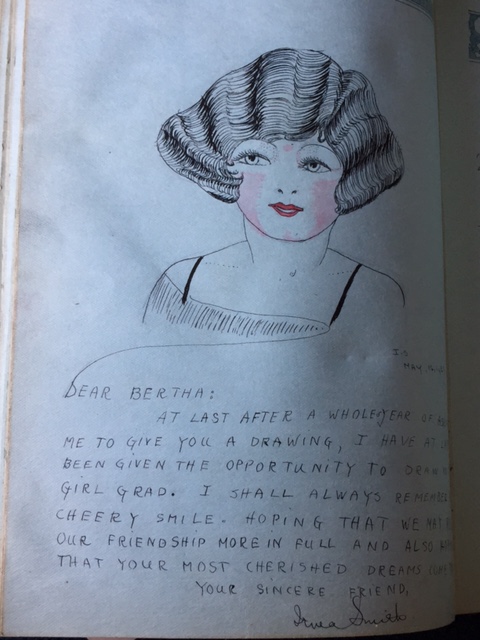 I.S
MAY
DEAR BERTHA:
AT LAST AFTER A WHOLE YEAR OF
ME TO GIVE YOU A DRAWING, I HAVE AT
BEEN GIVEN THE OPPORTUNITY TO DRAW
GIRL GRAD. I SHALL ALWAYS REMEMBER
CHEERY SMILE. HOPING THAT WE MAY
OUR FRIENDSHIP MORE IN FULL AND ALSO
THAT YOUR MOST CHERISHED DREAMS
YOUR SINCERE FRIEND,